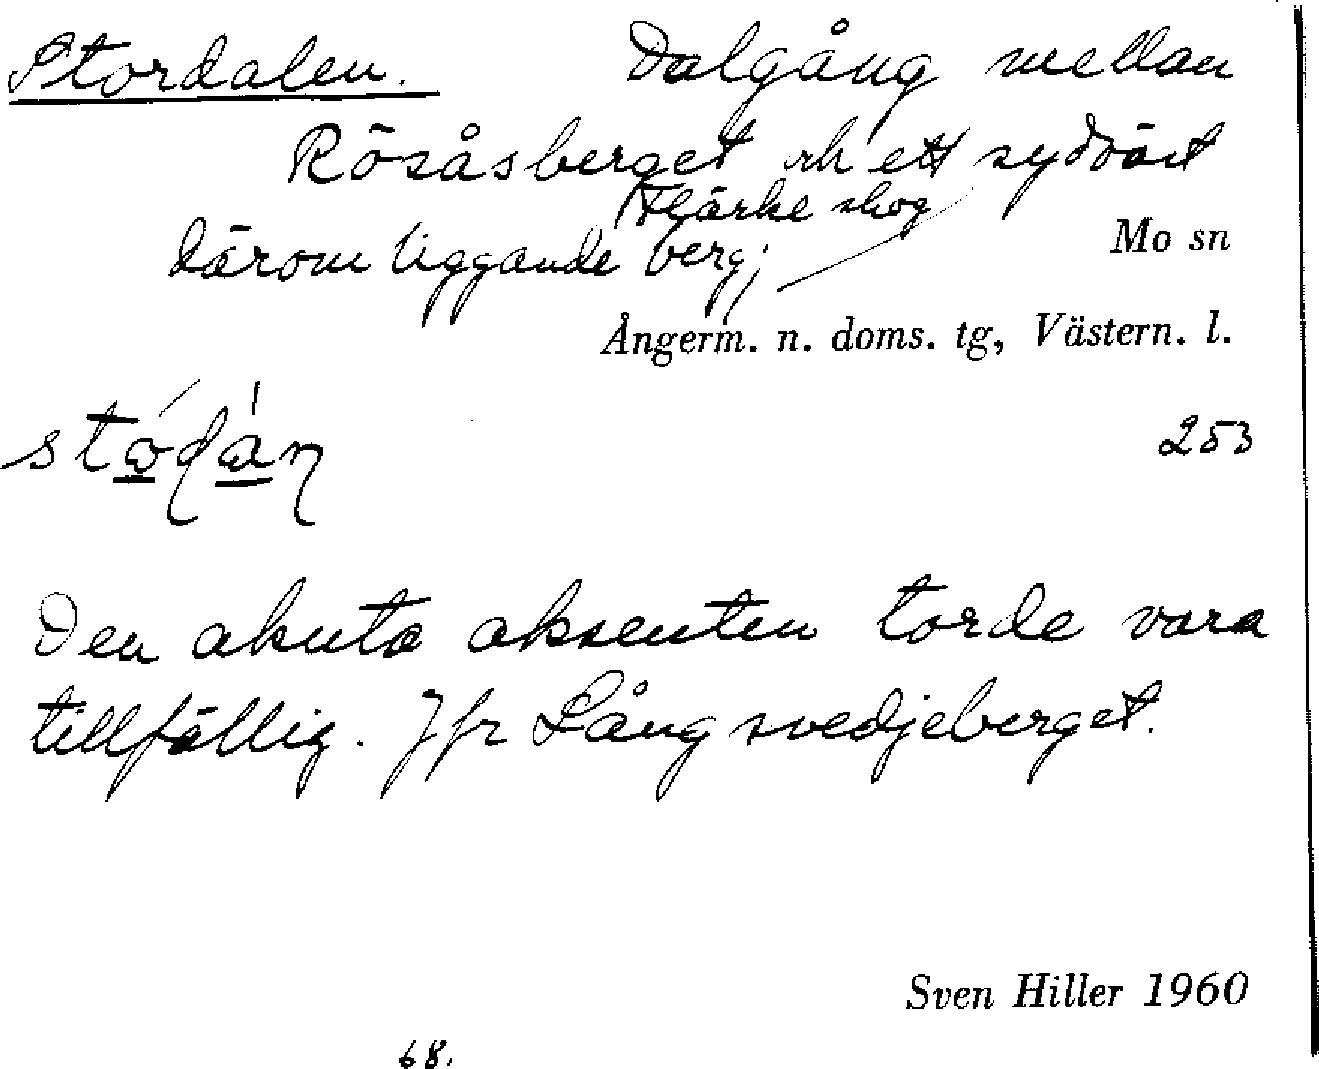 Stordalen. Dalgång mellan
Rösåsberget och ett sydväst
Flärke skog
därom liggande berg;
Mo sn
Ångerm. n. doms. tg, Västern. l.
253
Den akuta aksenten torde vara
tillfällig. Jfr Långsvedjeberget.
Sven Hiller 1960
68.